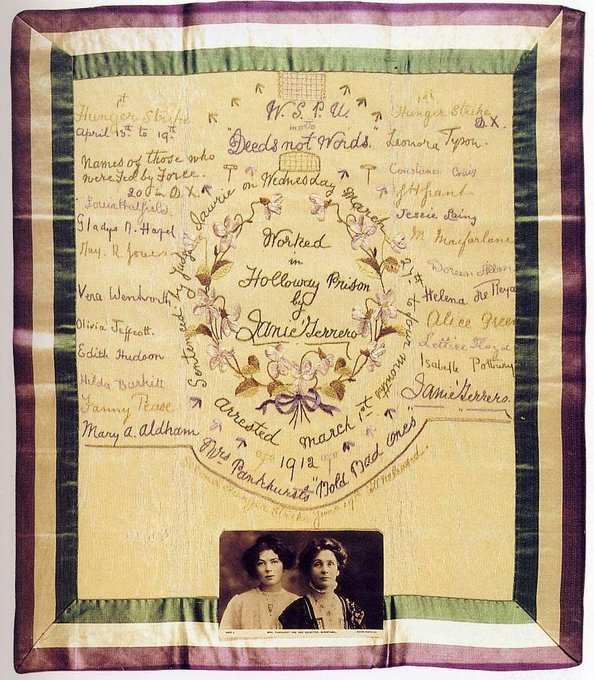 W.S.P.U.
motto
"Deeds not Words."
1st
Hunger Strike
April 13th to 19th
Names of those who
were Fed by Force.
D.X.
Louie Hatfield
Gladys N. Hazel
Vera Wentworth
Olivia Jeffcott.
Edith Hudson
Hilda Burkitt
Fanny Pease
Mary A. Aldham
Sentenced by Judge Lawrie on Wednesday March 27th to four months
Worked
in
Holloway Prison
by
Janie Terrero
arrested March 1st
1912
Mrs Pankhurst's "Bold Bad Ones"
1st
Hunger Strike
D.X.
Leonora Tyson.
Constance Craig
Jessie Laing
M. Macfarlane
Doreen Allan
Helena de Reya
Alice Green
Lettice Floyd
Isabella Potbury
Janie Terrero.
Hunger Strike June
Released.
MRS. PANKHURST AND HER DAUGHTER, CHRISTABEL.